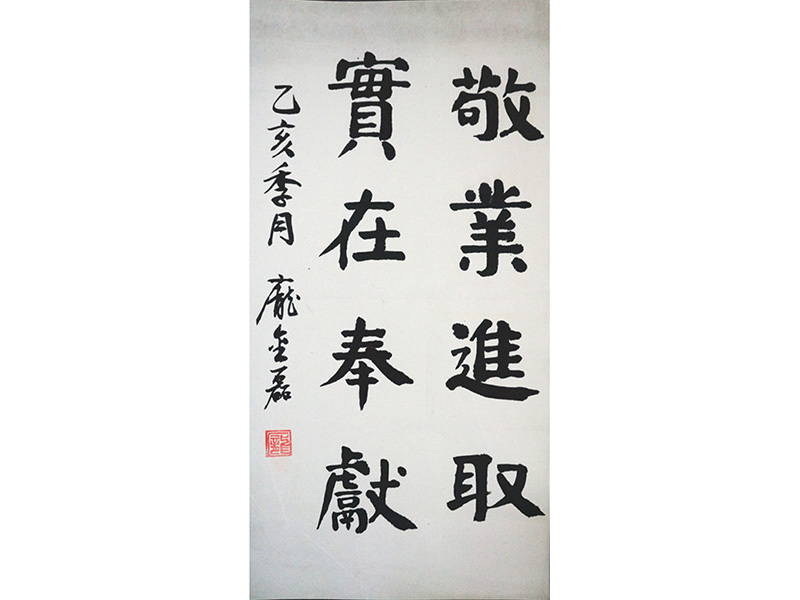 敬業進取
實在奉獻
乙亥季月 龐金磊